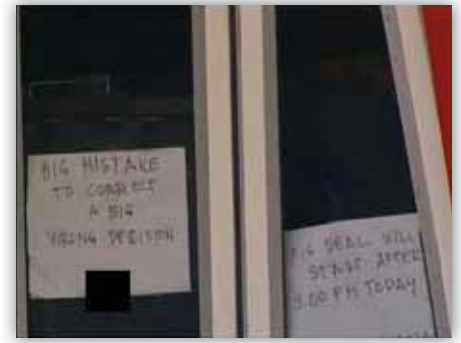 BIG MISTAKE
TO CORRECT
A BIG
WRONG DECISION
BIG DEAL WILL
START AFTER
3.00 PM TODAY